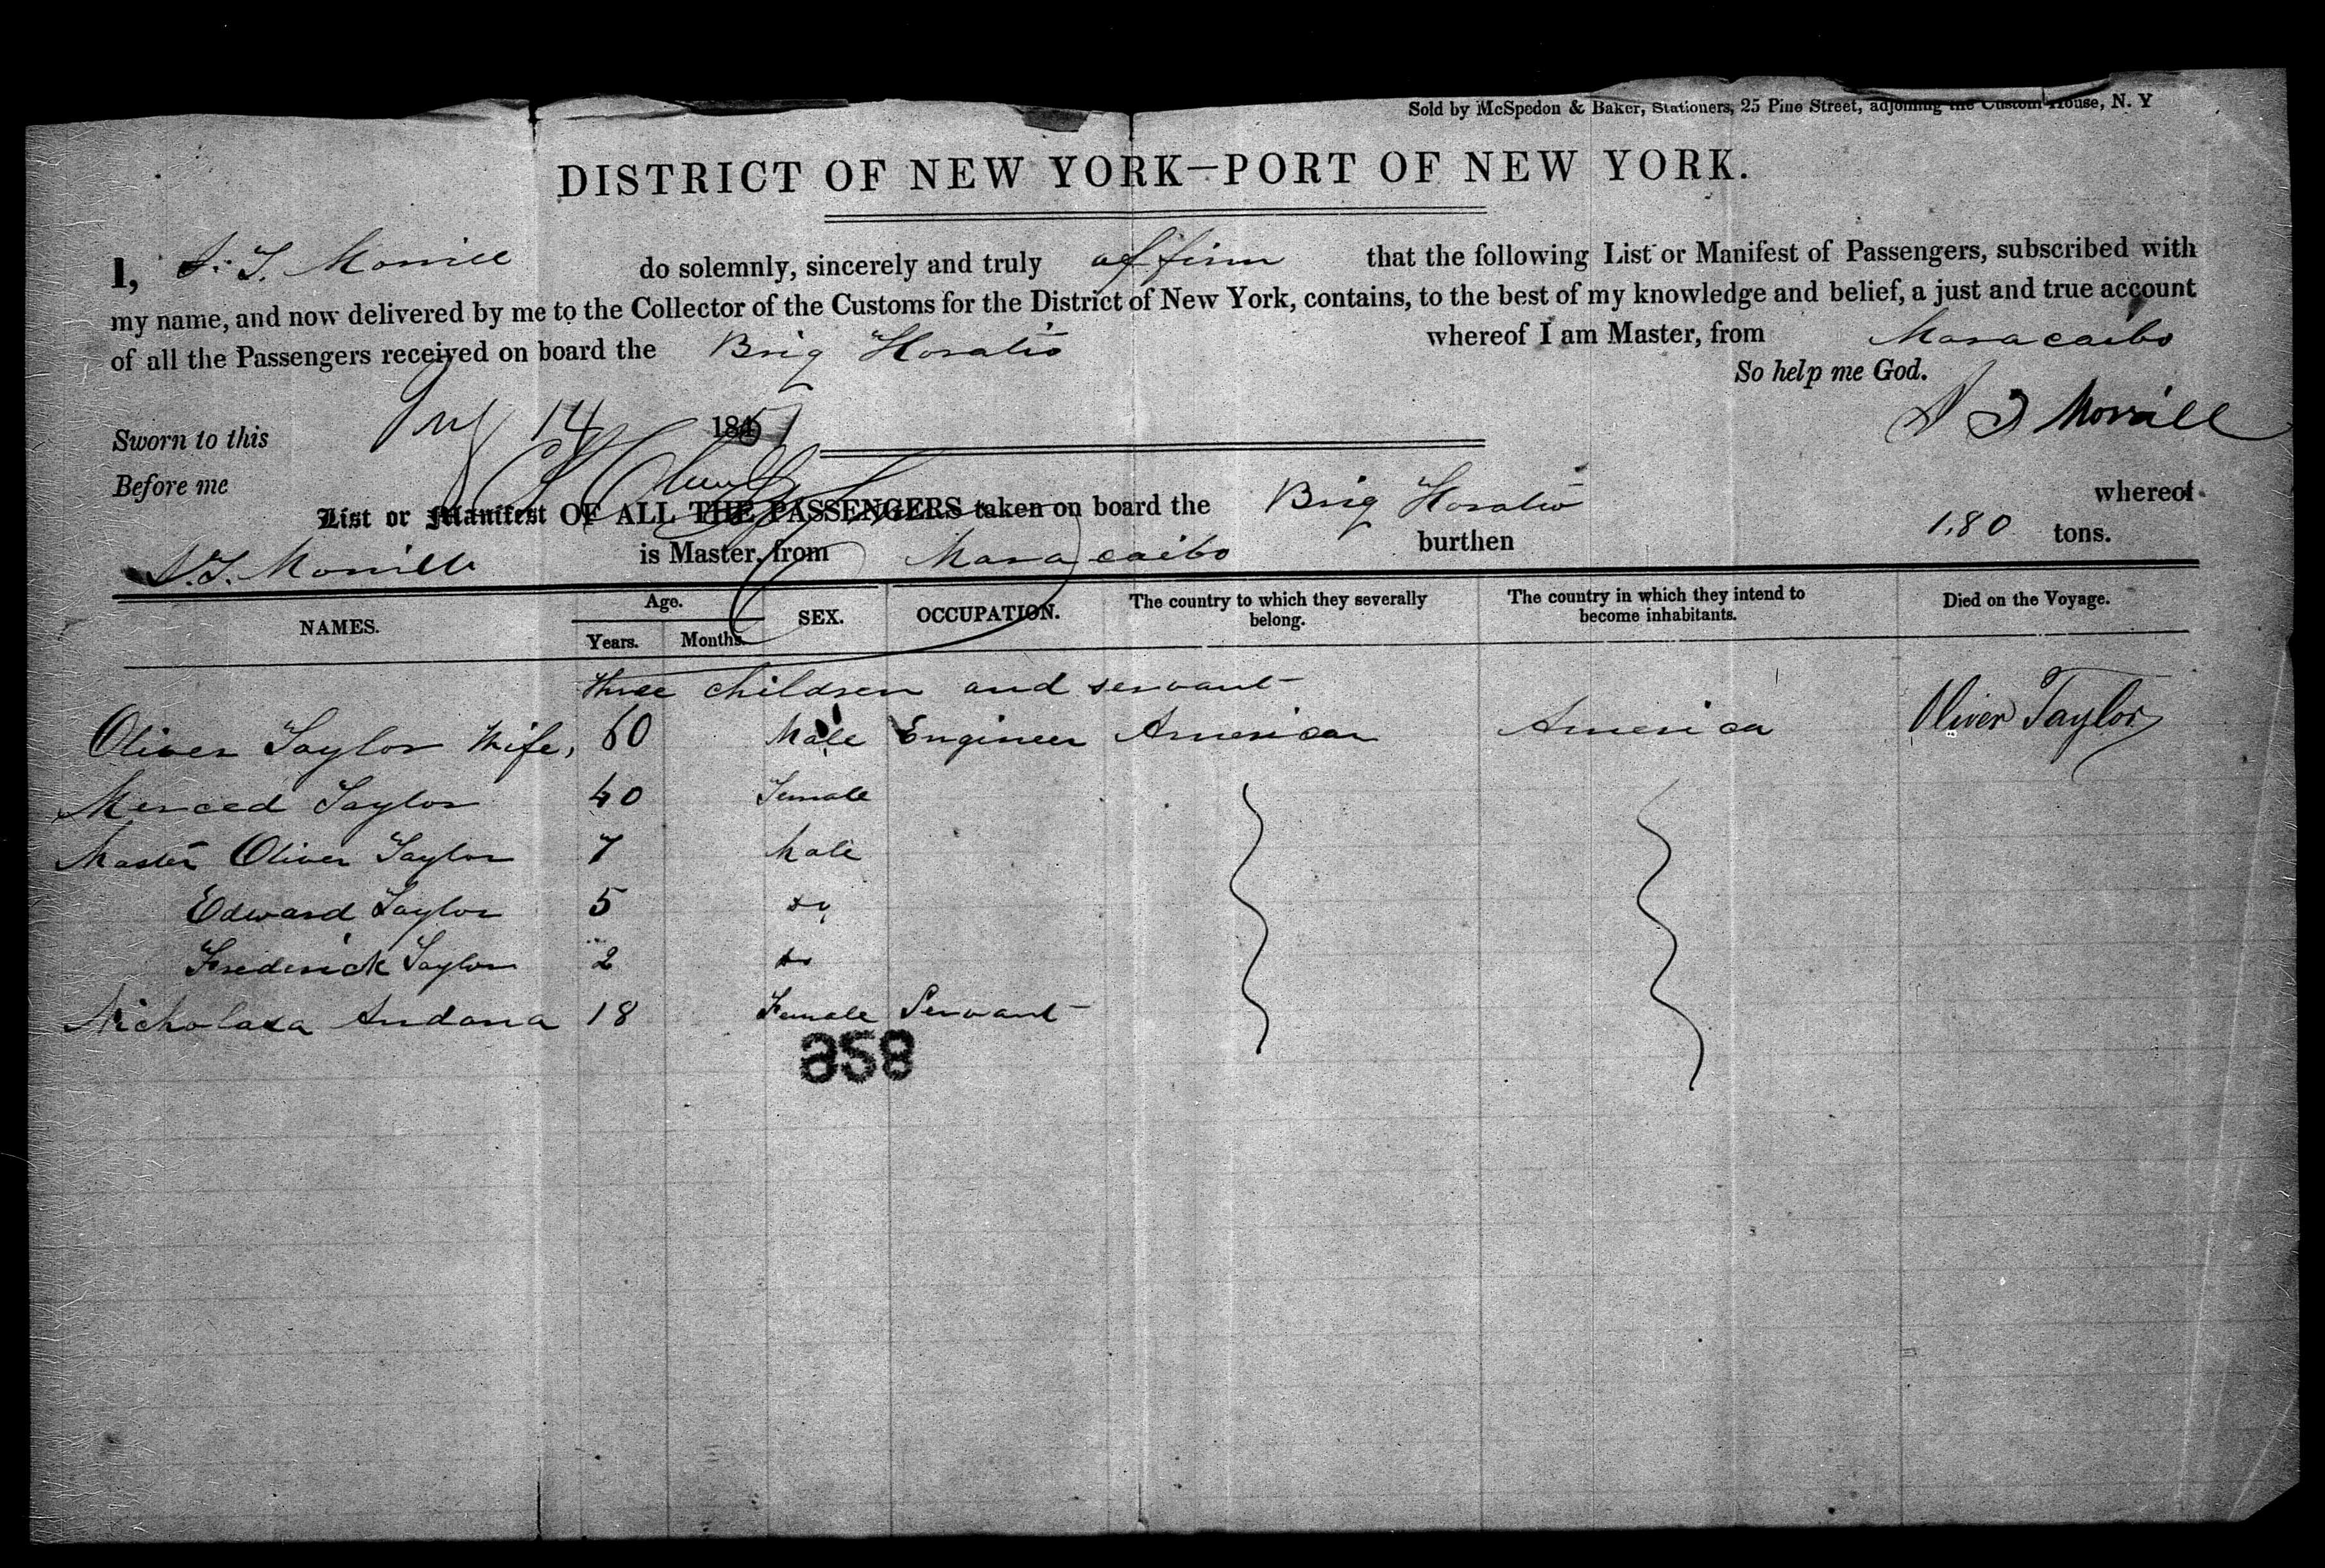 Sold by McSpedon & Baker, Stationers, 25 Pine Street, adjoining the Custom House, N. Y
DISTRICT OF NEW YORK—PORT OF NEW YORK.
I, S. T. Morrill do solemnly, sincerely and truly affirm that the following List or Manifest of Passengers, subscribed with
my name, and now delivered by me to the Collector of the Customs for the District of New York, contains, to the best of my knowledge and belief, a just and true account
of all the Passengers received on board the Brig Horatio whereof I am Master, from Maracaibo
So help me God.
Sworn to this 14 1851 Morrill
Before me
List or Manifest OF ALL THE PASSENGERS taken on board the Brig Horatio whereof
S. T. Morrill is Master, from Maracaibo burthen 180 tons.
NAMES. Age. Years. Months. SEX. OCCUPATION. The country to which they severally belong. The country in which they intend to become inhabitants. Died on the Voyage.
three children and servant
Oliver Taylor Wife, 60 Male Engineer American America Oliver Taylor
Merced Taylor 40 Female
Master Oliver Taylor 7 Male
Edward Taylor 5 do
Frederick Taylor 2 do
Nicholasa Andana 18 Female Servant
858